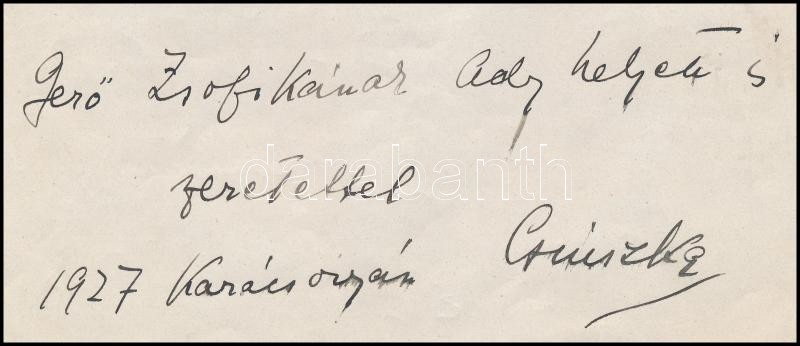 Gerő Zsofikának Ady helyett is
szeretettel
darabanth
1927 Karácsonyán Csinszka